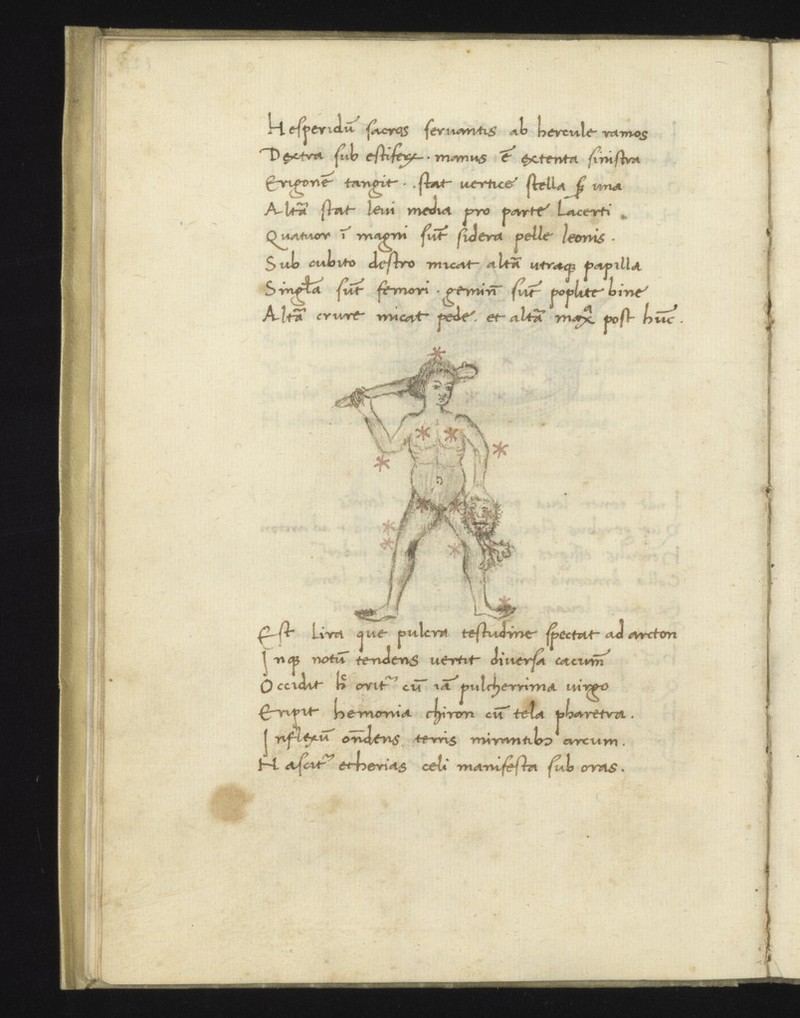 Hesperidū sacros seruantis ab hercule ramos
Dextra sub manus ē extenta sinistra
Erigonē tangit . stat uertice stella una
Altā stat leui media pro parte Lacerti .
Quatuor ī magni sūt sidera pelle leonis .
Sub cubito destro micat altā utraqꝫ papilla
sūt femori . gemin̄ sūt poplite bine
Altā crure micat pede . et altā post hūc .
Est Lira que pulcra testudine spectat ad arcton
Inqꝫ notū tendens uertit diuersa cacum̄
Occidit orit᷑ cū iā pulcherrima uirgo
Eripit hemonia chiron cū tela pharetra .
Inflexū on̄dens terris mirantibꝫ arcum .
Nascit᷑ etherias celi manifesta sub oras .